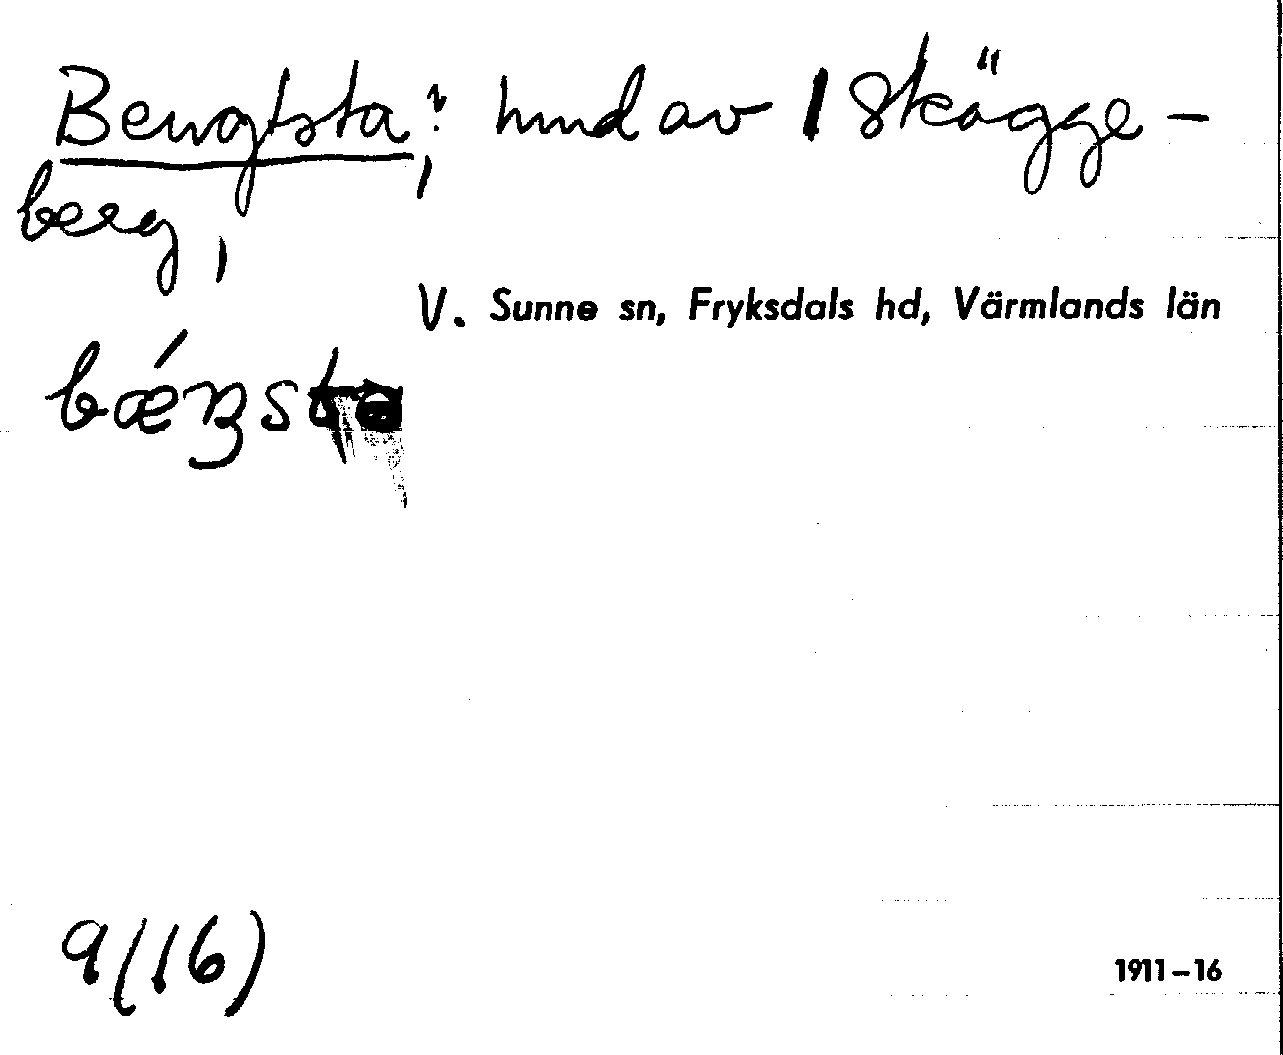 Bengtsta, hmd av 1 Skägge-
berg,
V. Sunne sn, Fryksdals hd, Värmlands län
bǽŋsta
9(16)
1911-16